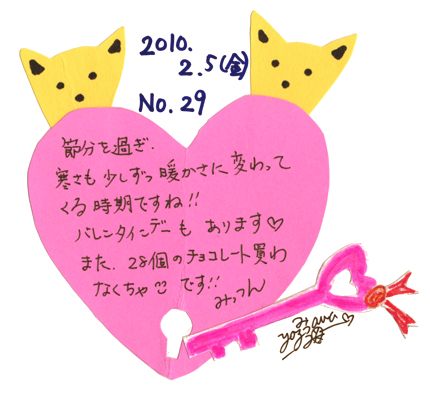 2010.
2.5(金)
No. 29
節分を過ぎ、
寒さも少しずつ暖かさに変わって
くる時期ですね!!
バレンタインデーもあります♡
また、28個のチョコレート買わ
なくちゃ です!!
みっつん